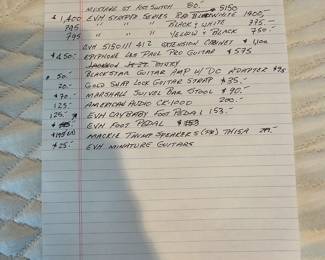 MISTAKE ST KILL SWITCH 80.-
$1,400 EVH STRIPED SERIES RED BLACK WHITE 1400.- 5150
795 " " " BLACK & WHITE 795.-
795 " " " YELLOW & BLACK 750.-
EVH 5150III 412 EXTENSION CABINET $ 1,100
$450.- EPIPHONE LES PAUL PRO GUITAR $575
JACKSON
$50.- BLACKSTAR GUITAR AMP W/ DC ADAPTER $75
20.- GOLD SNAP LOCK GUITAR STRAP $35.-
$70.- MARSHALL SWIVEL BAR STOOL $90.-
125.- AMERICAN AUDIO CK1000 200.-
125.- EVH CRYBABY FOOT PEDAL 153.-
EVH FOOT PEDAL $153
MACKIE THUMP SPEAKERS TH15A
$25.- EVH MINATURE GUITARS